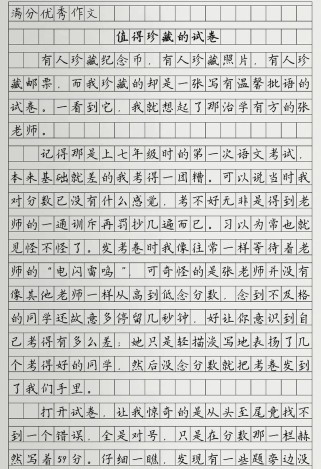 满分优秀作文
值得珍藏的试卷
有人珍藏纪念币，有人珍藏照片，有人珍
藏邮票，而我珍藏的却是一张写有温馨批语的
试卷。一看到它，我就想起了那治学有方的张
老师。
记得那是上七年级时的第一次语文考试，
本来基础就差的我考得一团糟。可以说当时我
对分数已没有什么感觉，考不好无非是得到老
师的一通训斥再罚抄几遍而已。习以为常也就
见怪不怪了。发考卷时我像往常一样等待着老
师的“电闪雷鸣”，可奇怪的是张老师并没有
像其他老师一样从高到低念分数，念到不及格
的同学还故意多停留几秒钟，好让你意识到自
己考得有多么差；她只是轻描淡写地表扬了几
个考得好的同学，然后没念分数就把考卷发到
了我们手里。
打开试卷，让我惊奇的是从头至尾竟找不
到一个错误，全是对号，只是在分数那一栏赫
然写着59分。仔细一瞧，发现有一些题旁边没